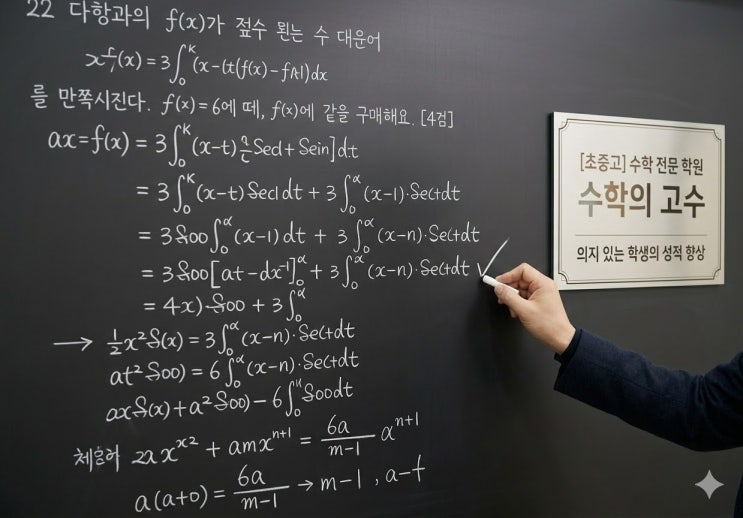 22 다항과의 f(x)가 젚수 뮌는 수 대운어
x f/1(x) = 3∫₀ᴷ (x-(t(f(x)-fA1)dx
를 만쪽시진다. f(x)=6에 떼, f(x)에 같을 구매해요. [4검]
ax=f(x) = 3∫₀ᴷ(x-t) Secl+Sein]dt
= 3∫₀ᴷ(x-t) Secldt + 3∫₀ᵅ(x-1)·Sectdt
= 3 Soo∫₀ᵅ(x-1)dt + 3∫₀ᵅ(x-n)·Sectdt
= 3 Soo[at-dx⁻¹]₀ᵅ + 3∫₀ᵅ(x-n)·Sectdt ✓
= 4x)-Soo + 3∫₀ᵅ
→ ½x²S(x) = 3∫₀ᵅ(x-n)·Sectdt
at²Soo) = 6∫₀ᵅ(x-n)·Sectdt
axS(x)+a²Soo)-6∫₀ᵘSoodt
2a x^x2 + amx^n+1 = 6a/m-1 a^n+1
a(a+0) = 6a/m-1 → m-1, a-t
[초중고] 수학 전문 학원
수학의 고수
의지 있는 학생의 성적 향상